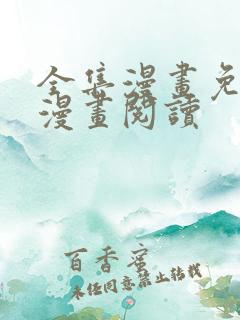 全集漫畫免
漫畫閱讀
百香蜜
未經同意禁止轉載